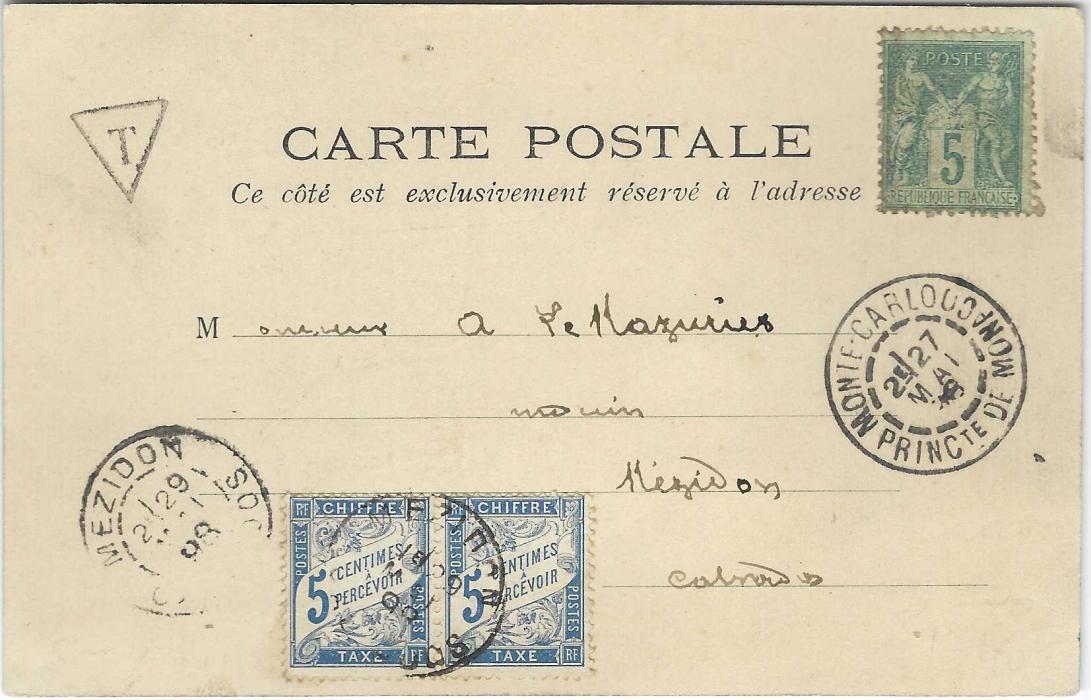 POSTE
5
REPUBLIQUE FRANÇAISE
T
CARTE POSTALE
Ce côté est exclusivement réservé à l'adresse
MONTE-CARLO
PRINCTE DE MONACO
2E
27
MAI
Monsieur A Le
Mézidon
Calvados
MEZIDON
2E
29
98
RF CHIFFRE RF CHIFFRE RF
POSTES
5 CENTIMES À PERCEVOIR
POSTES
TAXE
5 CENTIMES À PERCEVOIR
POSTES
TAXE RF